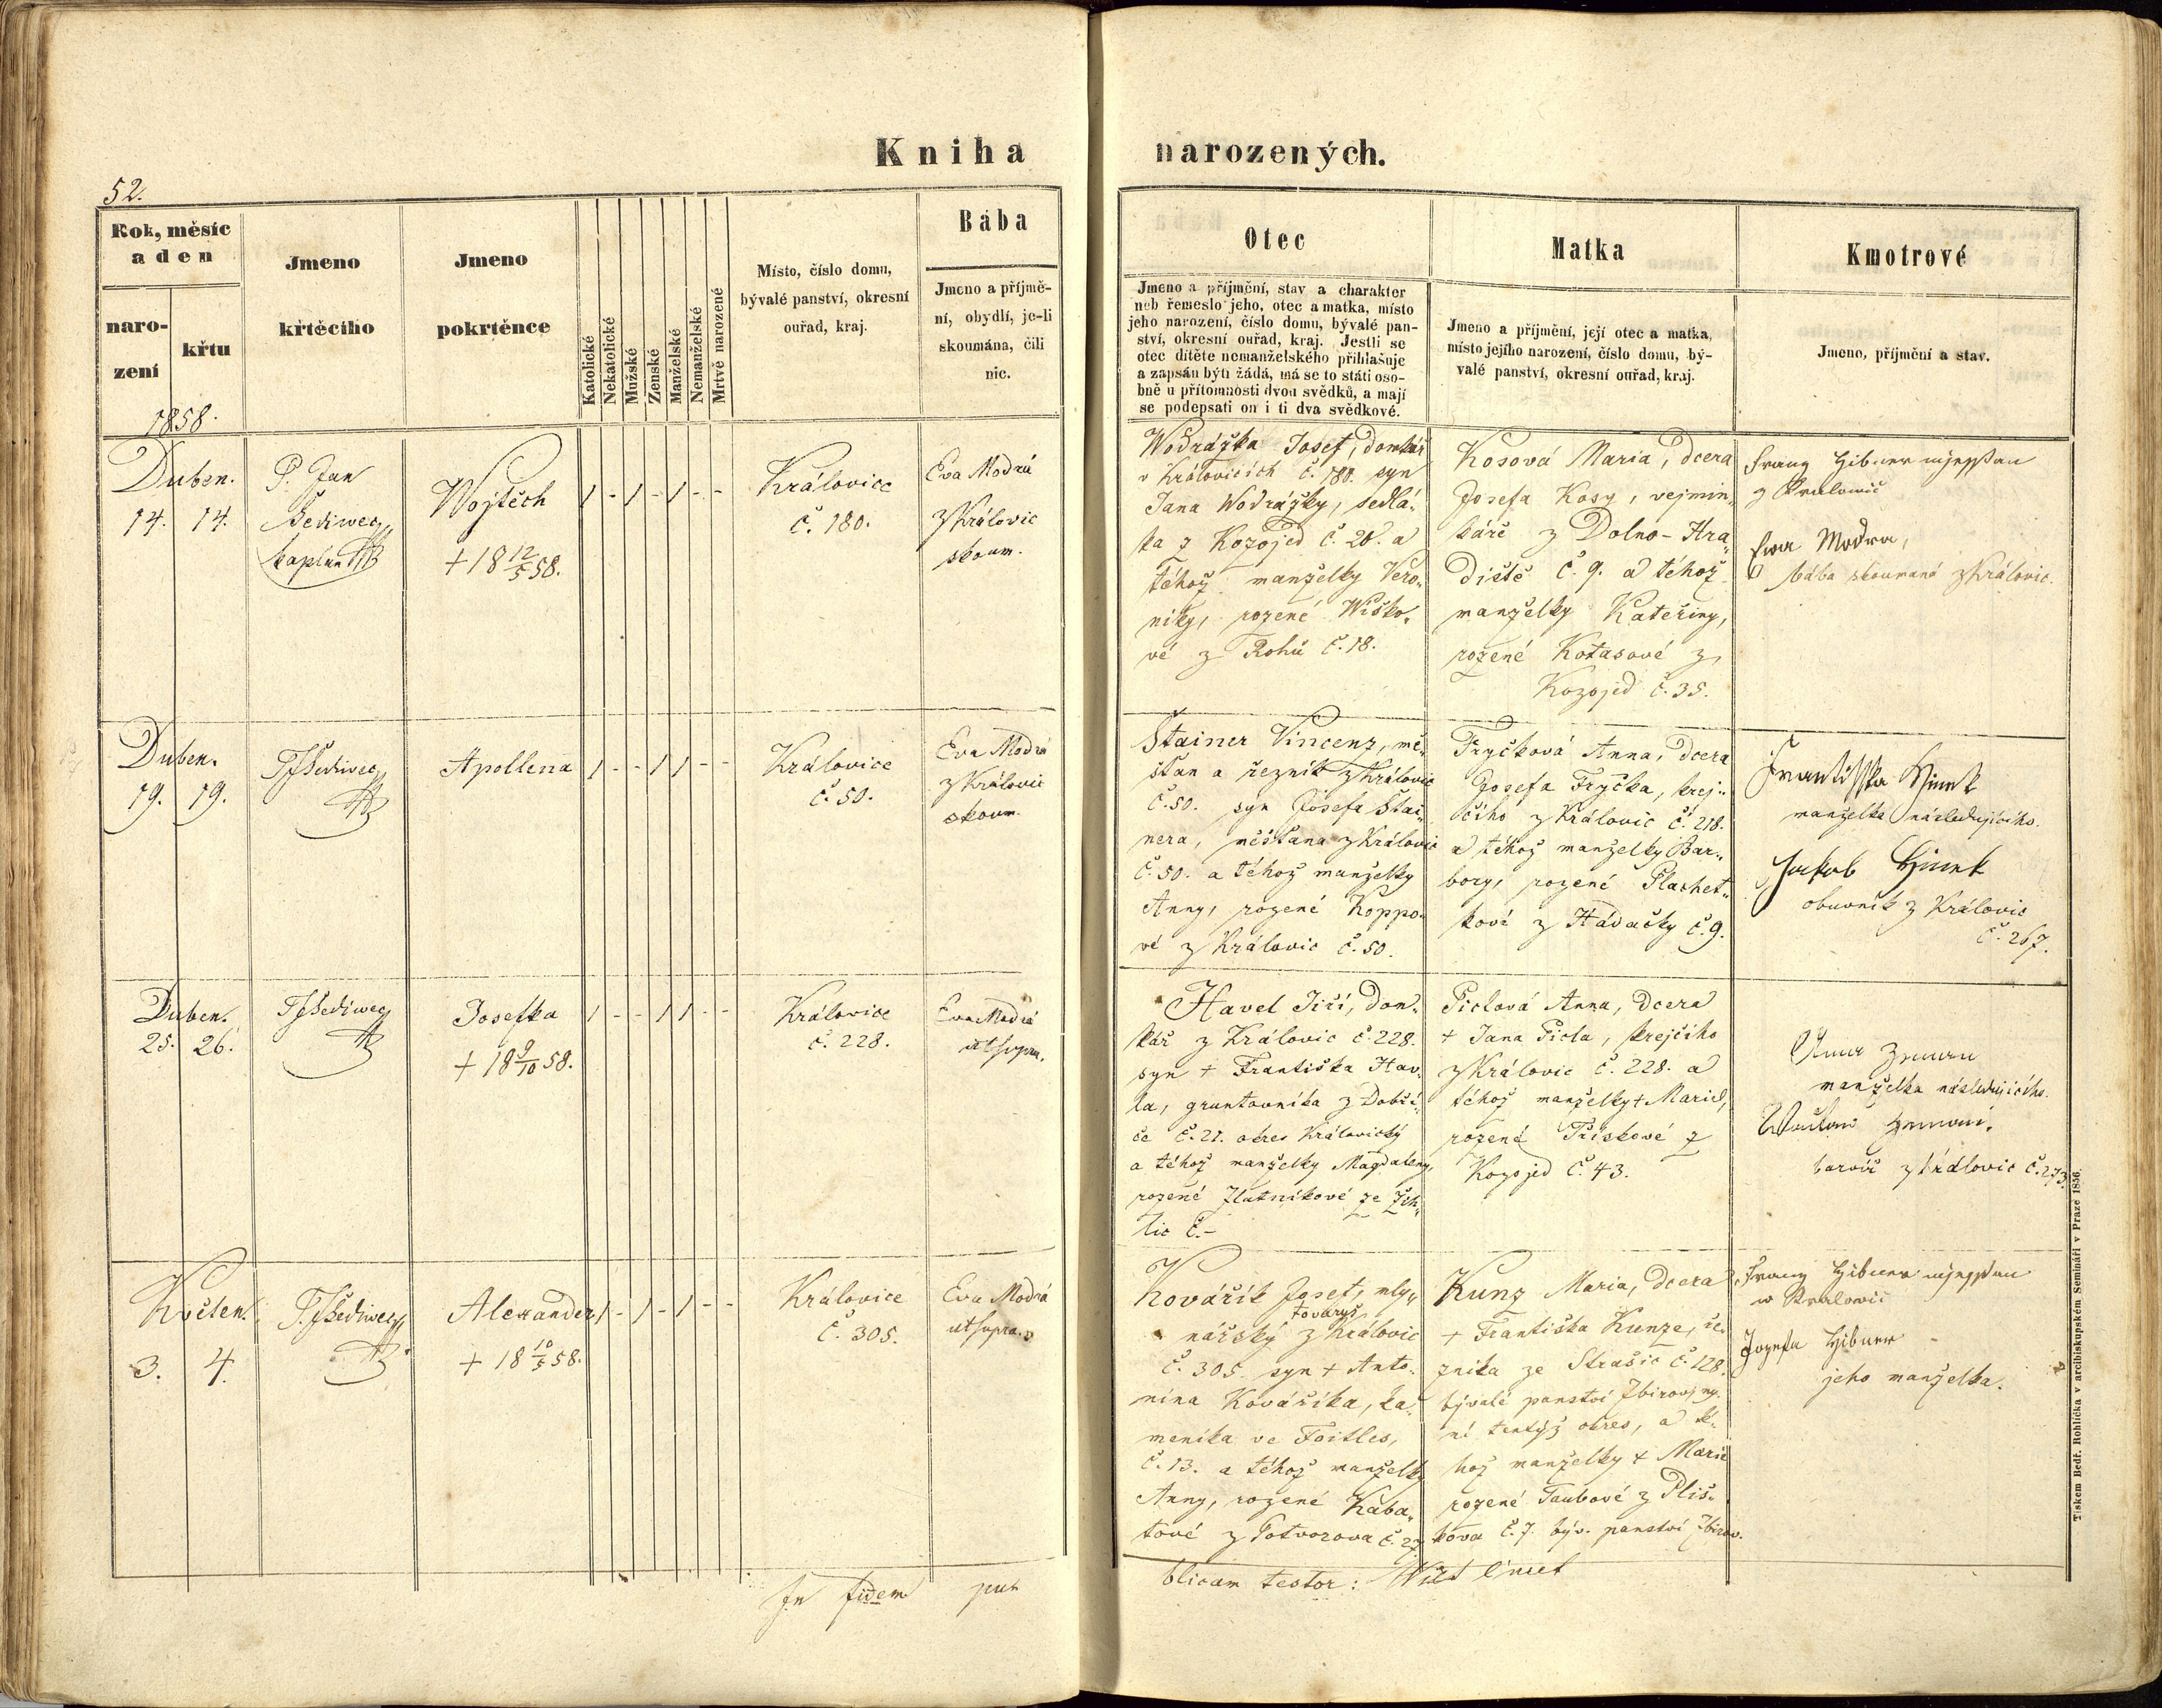 Kniha narozených.
52.
Rok, měsíc
a den
naro-
zení
křtu
Jmeno
křtěcího
Jmeno
pokrtěnce
Katolické
Nekatolické
Mužské
Ženské
Manželské
Nemanželské
Mrtvě narozené
Místo, číslo domu,
bývalé panství, okresní
ouřad, kraj.
Bába
Jmeno a příjmě-
ní, obydlí, je-li
skoumána, čili
nic.
Otec
Jmeno a příjmění, stav a charakter
neb řemeslo jeho, otec a matka, místo
jeho narození, číslo domu, bývalé pan-
ství, okresní ouřad, kraj. Jestli se
otec dítěte nemanželského přihlašuje
a zapsán býti žádá, má se to státi oso-
bně u přítomnosti dvou svědků, a mají
se podepsati on i ti dva svědkové.
Matka
Jmeno a příjmění, její otec a matka,
místo jejího narození, číslo domu, bý-
valé panství, okresní ouřad, kraj.
Kmotrové
Jmeno, příjmění a stav.
1858.
Duben.
14. 14.
P. Jan
Šediwec
kaplan
Wojtěch
+ 18 12/5 58.
1 - 1 - 1 - -
Králowice
č. 180.
Eva Modrá
z Králowic
skoum.
Wodrážka Josef, domkář
v Králowicích č. 180. syn
Jana Wodrážky, sedlá-
ka z Kozojed č. 20. a
téhož manželky Vero-
niky, rozené Wiško-
vé z Rohů č. 18.
Kosová Maria, dcera
Josefa Kosy, vejmin-
káře z Dolno-Hra-
diště č. 9. a téhož
manželky Kateřiny,
rozené Kotasové z
Kozojed č. 35.
Franz Hibner
z Kralowic
Ewa Modra,
bába skoumaná z Královic.
Duben.
19. 19.
P J Šediwec
Apollena
1 - - 1 1 - -
Králowice
č. 50.
Eva Modrá
z Královic
skoum.
Štainer Vincenz, mě-
šťan a řezník z Králowic
č. 50. syn Josefa Štai-
nera, měšťana z Králowic
č. 50. a téhož manželky
Anny, rozené Koppo-
vé z Králowic č. 50.
Fryčková Anna, dcera
Josefa Fryčka, krej-
čího z Králowic č. 218.
a téhož manželky Bar-
bory, rozené Plachet-
kové z Hádačky č. 9.
Frantisska
manželka následujícího.
Jakob
obuvník z Králowic
č. 267.
Duben.
25. 26.
P J Šediwec
Josefka
+ 18 9/10 58.
1 - - 1 1 - -
Králowice
č. 228.
Eva Modrá
ut supra.
Havel Jiří, dom-
kář z Králowic č. 228.
syn + Františka Hav-
la, gruntovníka z Dobří-
če č. 21. okres Králowický
a téhož manželky Magdaleny,
rozené Zlatníkové ze Žih-
lic č. -
Piclová Anna, dcera
+ Jana Picla, krejčího
z Králowic č. 228. a
téhož manželky + Marie,
rozené Třískové z
Kozojed č. 43.
Anna
manželka následujícího.
barvíř z Králowic č. 273.
Květen.
3. 4.
P. J Šediwec
Alexander
+ 18 10/5 58.
1 - 1 - 1 - -
Králowice
č. 305.
Eva Modrá
ut supra.
Kovářík Josef, mly-
nářský tovaryš z Králowic
č. 305. syn + Anto-
nína Kováříka, ka-
meníka ve Foitles,
č. 13. a téhož manželky
Anny, rozené Kaba-
tové z Potvorova č. 27.
Kunz Maria, dcera
+ Františka Kunze, ře-
zníka ze Strašic č. 128.
bývalé panství Zbirov, ny-
ní tentýž okres, a té-
hož manželky + Marie
rozené Taubové z Pliš-
kova č. 7. býv. panství Zbirov.
Franz Hibner
w Kralowic
Jozefa Hibner
jeho manželka.
In fidem pub
blicam testor:
Tiskem Bedř. Rohlíčka v arcibiskupském Semináři v Praze 1856.